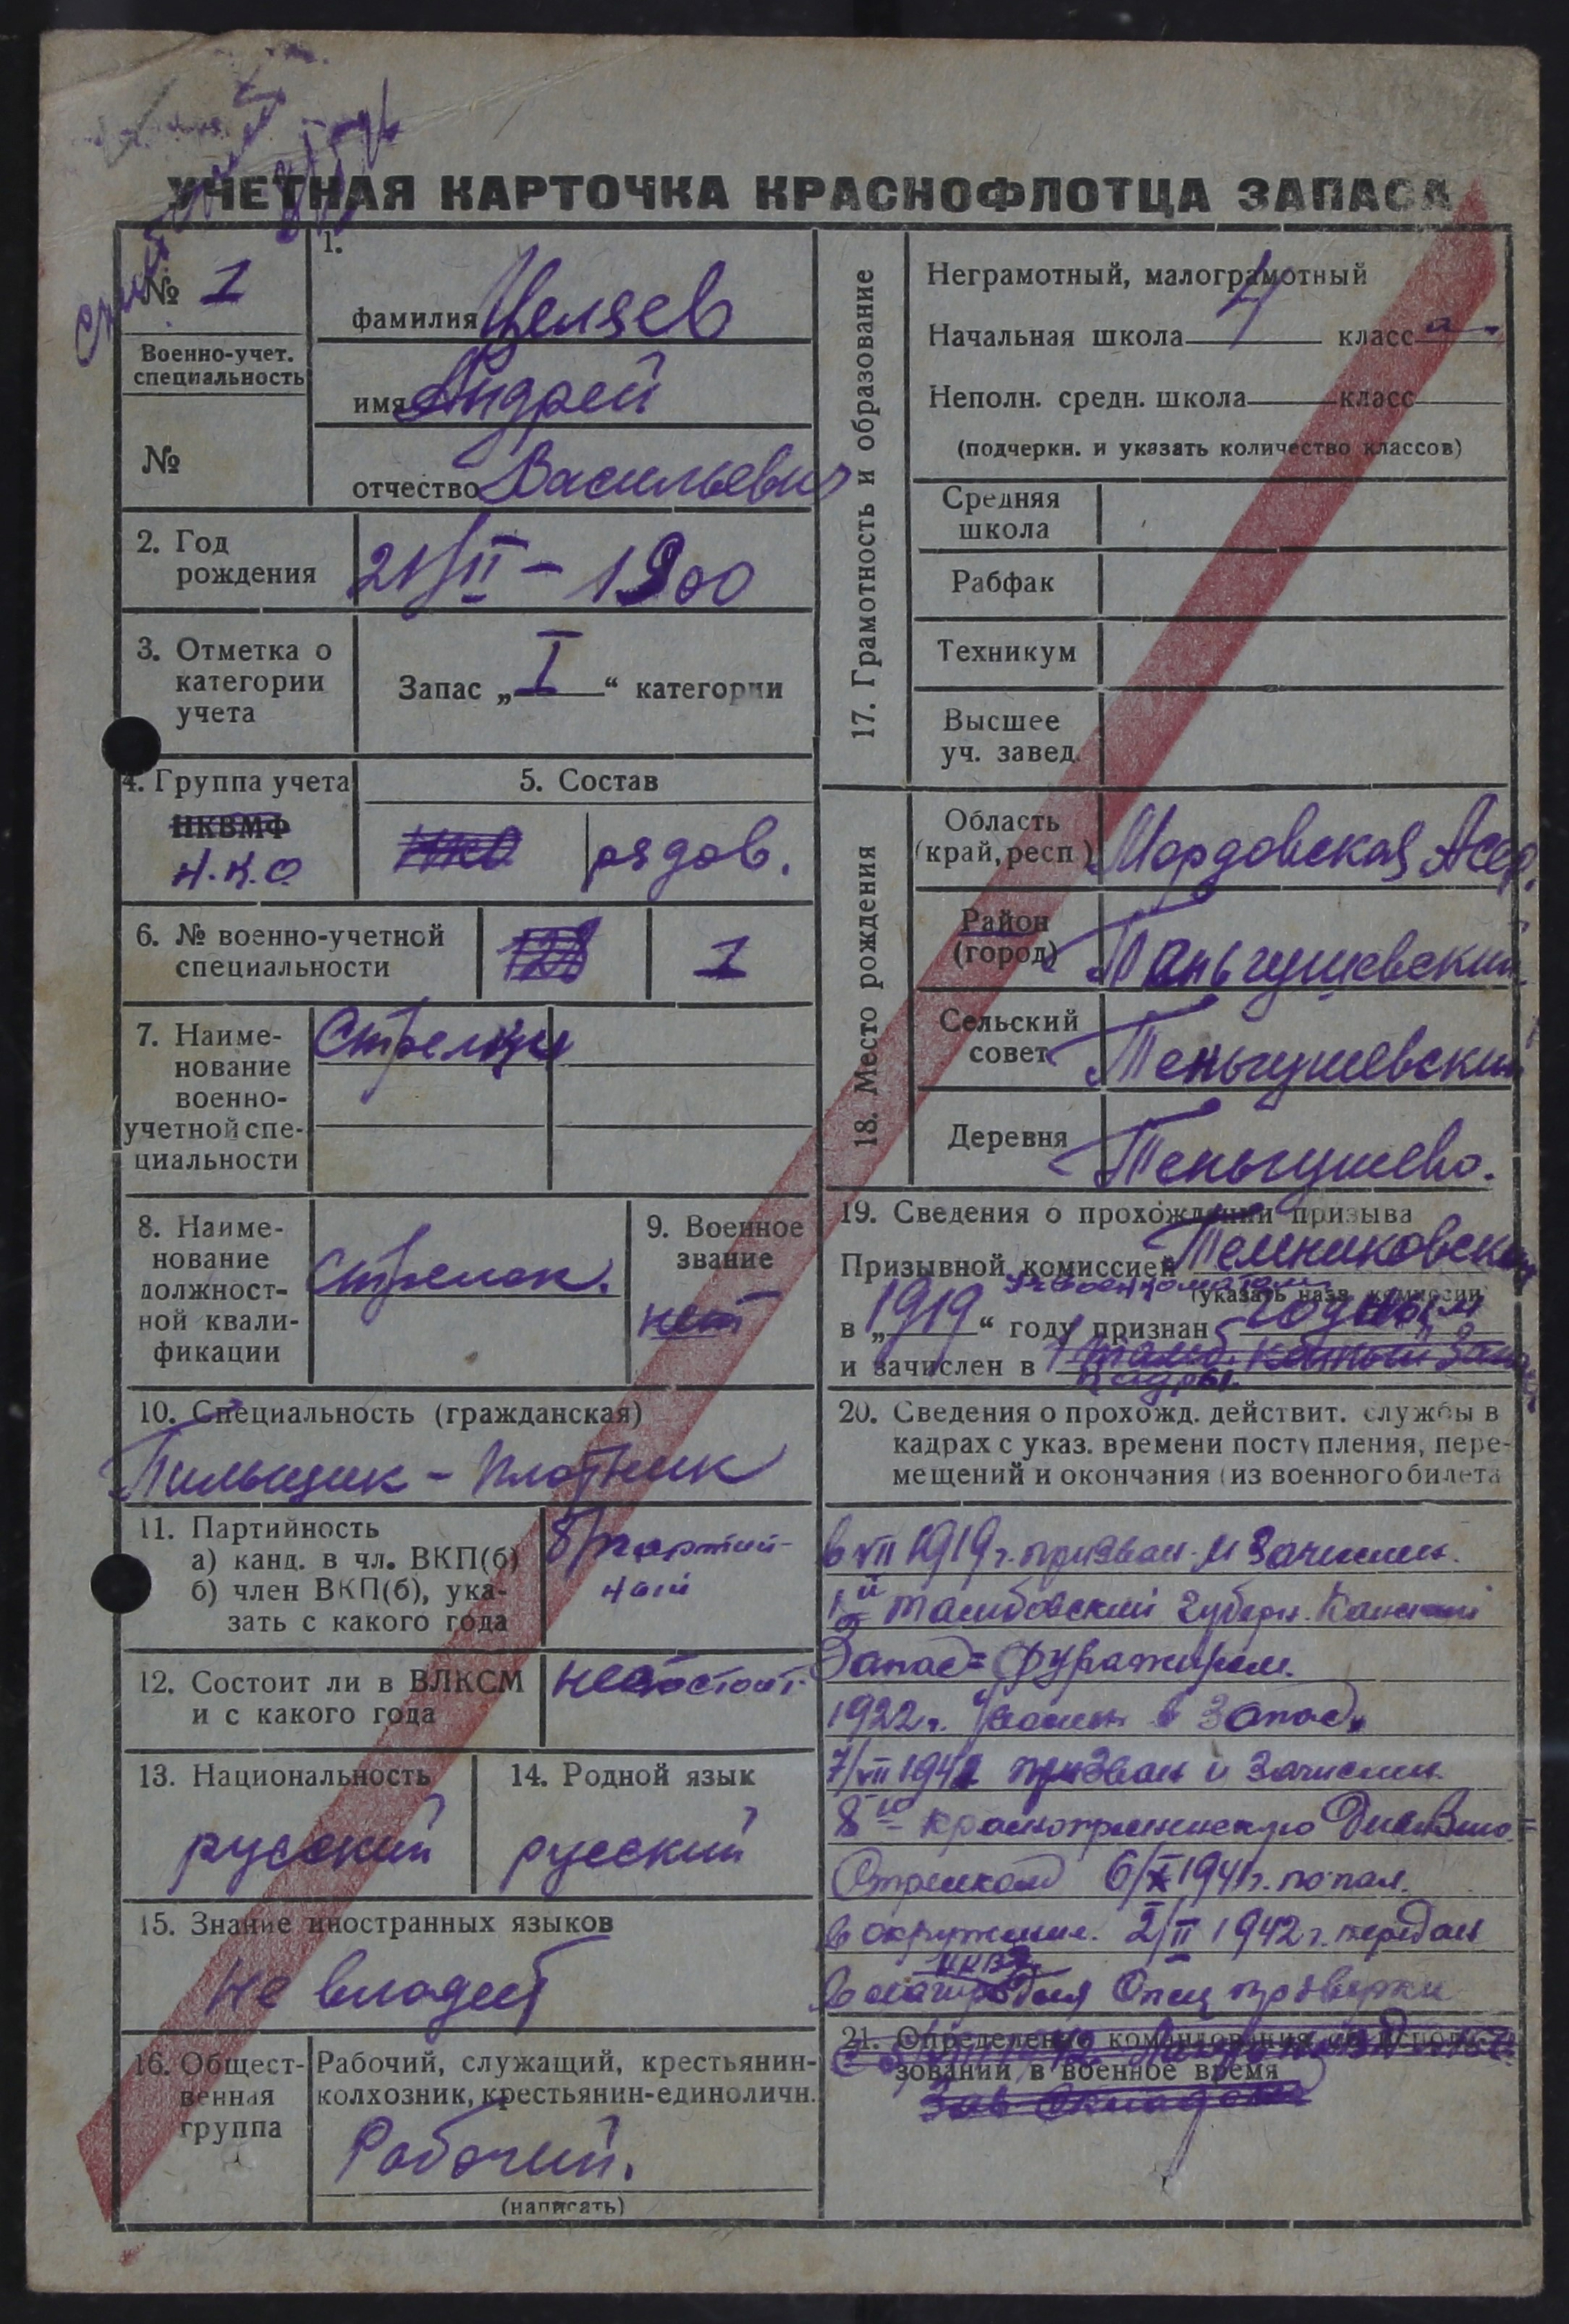 УЧЕТНАЯ КАРТОЧКА КРАСНОФЛОТЦА ЗАПАСА
№ 1
Военно-учет.
специальность
№
1.
фамилия Целяев
имя Андрей
отчество Васильевич
2. Год
рождения
21/II – 1900
3. Отметка о
категории
учета
Запас „ I “ категории
4. Группа учета
НКВМФ
Н.К.О.
5. Состав
рядов.
6. № военно-учетной
специальности
1
7. Наиме-
нование
военно-
учетной спе-
циальности
Стрелки
8. Наиме-
нование
должност-
ной квали-
фикации
Стрелок.
9. Военное
звание
нет
10. Специальность (гражданская)
Пильщик – плотник
11. Партийность
а) канд. в чл. ВКП(б)
б) член ВКП(б), ука-
зать с какого года
б/партий-
ный
12. Состоит ли в ВЛКСМ
и с какого года
не состоит
13. Национальность
русский
14. Родной язык
русский
15. Знание иностранных языков
не владеет
16. Общест-
венная
группа
Рабочий, служащий, крестьянин-
колхозник, крестьянин-единоличн.
Рабочий.
(написать)
17. Грамотность и образование
Неграмотный, малограмотный
Начальная школа 4 класса
Неполн. средн. школа класс
(подчеркн. и указать количество классов)
Средняя
школа
Рабфак
Техникум
Высшее
уч. завед.
18. Место рождения
Область
(край, респ.)
Мордовская АССР.
Район
(город)
Теньгушевский
Сельский
совет
Теньгушевский
Деревня
Теньгушево.
19. Сведения о прохождении призыва
Призывной комиссией Темниковским
Рвоенкоматом
(указать назв. комиссии)
в „1919“ году признан годным
и зачислен в 1 Тамб. конный запас
кадры.
20. Сведения о прохожд. действит. службы в
кадрах с указ. времени поступления, пере-
мещений и окончания (из военного билета
в VII 1919 г. призван и зачислен.
1й Тамбовский губерн. конный
Запас= фуражиром.
1922 г. уволен в запас.
7/VII 1941 призван и зачислен
8ю краснопресненскую дивизию=
Стрелком 6/X 1941 г. попал
в окружение. 2/II 1942 г. передан
НКВД
в лагерь для спец проверки
21. Определение командования об исполь-
зовании в военное время
Зав складом